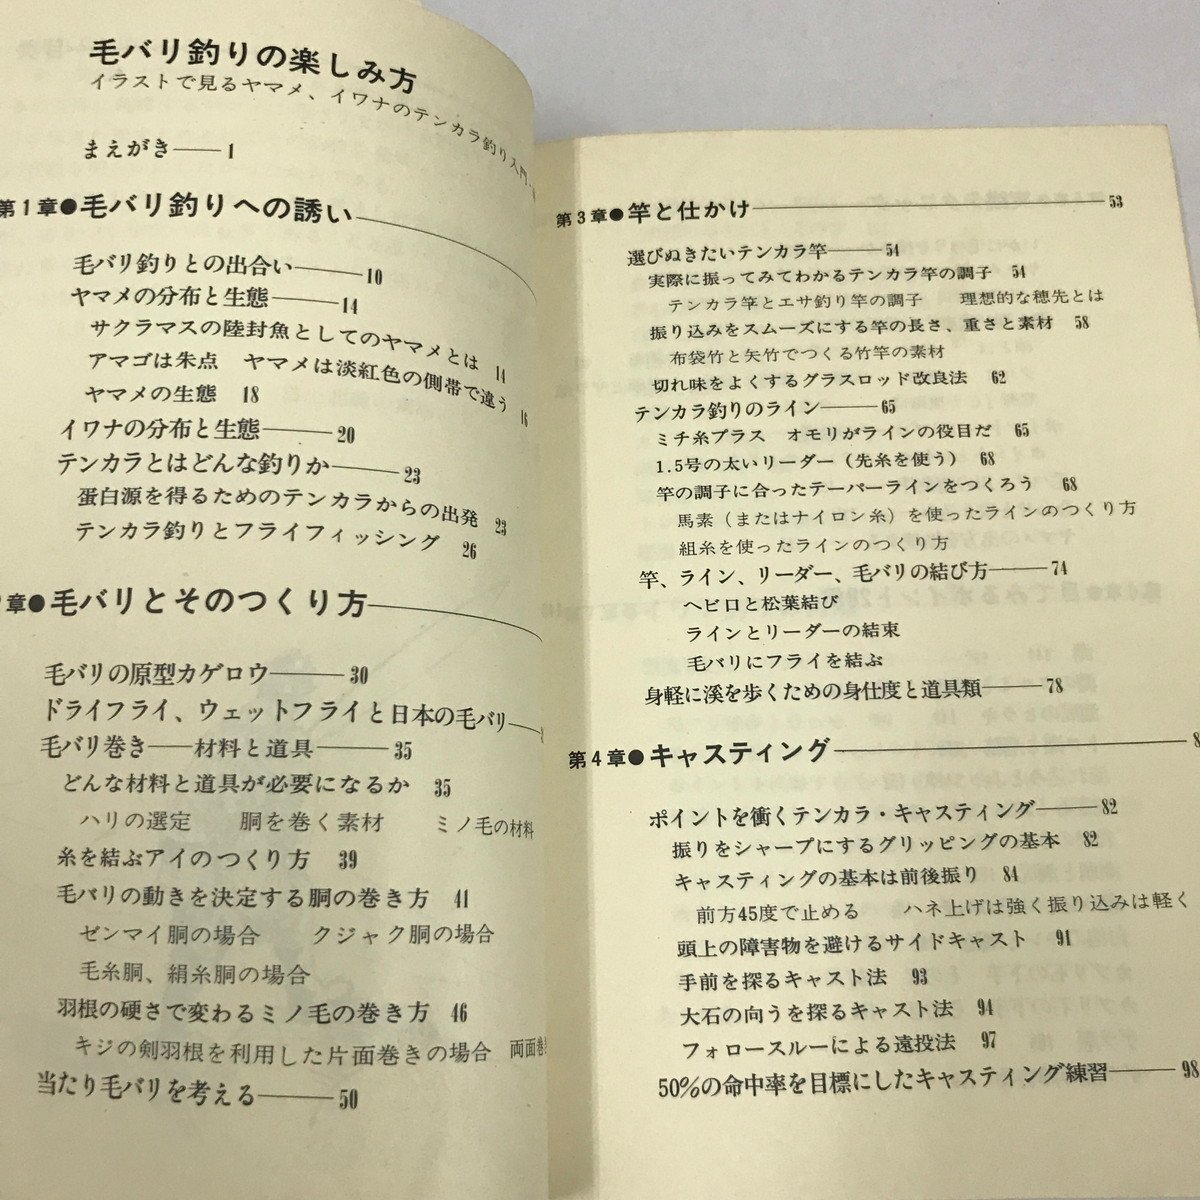 毛バリ釣りの楽しみ方
イラストで見るヤマメ、イワナのテンカラ釣り入門・
まえがき――1
第1章●毛バリ釣りへの誘い――
毛バリ釣りとの出合い――10
ヤマメの分布と生態――14
サクラマスの陸封魚としてのヤマメとは 14
アマゴは朱点 ヤマメは淡紅色の側帯で違う 16
ヤマメの生態 18
イワナの分布と生態――20
テンカラとはどんな釣りか――23
蛋白源を得るためのテンカラからの出発 23
テンカラ釣りとフライフィッシング 26
章●毛バリとそのつくり方――
毛バリの原型カゲロウ――30
ドライフライ、ウェットフライと日本の毛バリ――
毛バリ巻き――材料と道具――35
どんな材料と道具が必要になるか 35
ハリの選定 胴を巻く素材 ミノ毛の材料
糸を結ぶアイのつくり方 39
毛バリの動きを決定する胴の巻き方 41
ゼンマイ胴の場合 クジャク胴の場合
毛糸胴、絹糸胴の場合
羽根の硬さで変わるミノ毛の巻き方 46
キジの剣羽根を利用した片面巻きの場合 両面巻
当たり毛バリを考える――50
第3章●竿と仕かけ――53
選びぬきたいテンカラ竿――54
実際に振ってみてわかるテンカラ竿の調子 54
テンカラ竿とエサ釣り竿の調子 理想的な穂先とは
振り込みをスムーズにする竿の長さ、重さと素材 58
布袋竹と矢竹でつくる竹竿の素材
切れ味をよくするグラスロッド改良法 62
テンカラ釣りのライン――65
ミチ糸プラス オモリがラインの役目だ 65
1.5号の太いリーダー（先糸を使う） 68
竿の調子に合ったテーパーラインをつくろう 68
馬素（またはナイロン糸）を使ったラインのつくり方
組糸を使ったラインのつくり方
竿、ライン、リーダー、毛バリの結び方――74
ヘビロと松葉結び
ラインとリーダーの結束
毛バリにフライを結ぶ
身軽に渓を歩くための身仕度と道具類――78
第4章●キャスティング――8
ポイントを衝くテンカラ・キャスティング――82
振りをシャープにするグリッピングの基本 82
キャスティングの基本は前後振り 84
前方45度で止める ハネ上げは強く振り込みは軽く
頭上の障害物を避けるサイドキャスト 91
手前を探るキャスト法 93
大石の向うを探るキャスト法 94
フォロースルーによる遠投法 97
50%の命中率を目標にしたキャスティング練習――98